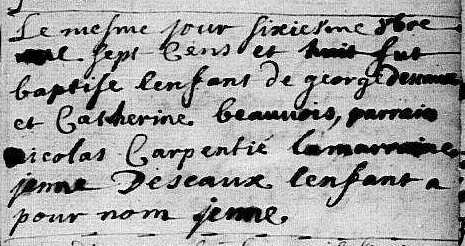 Le mesme jour sixiesme xbre
mile sept Cens et huit fut
baptise lenfant de george deseaux
et Catherine beauvois, parrain
nicolas Carpentié lamarraine
jenne Deseaux lenfant a
pour nom jenne